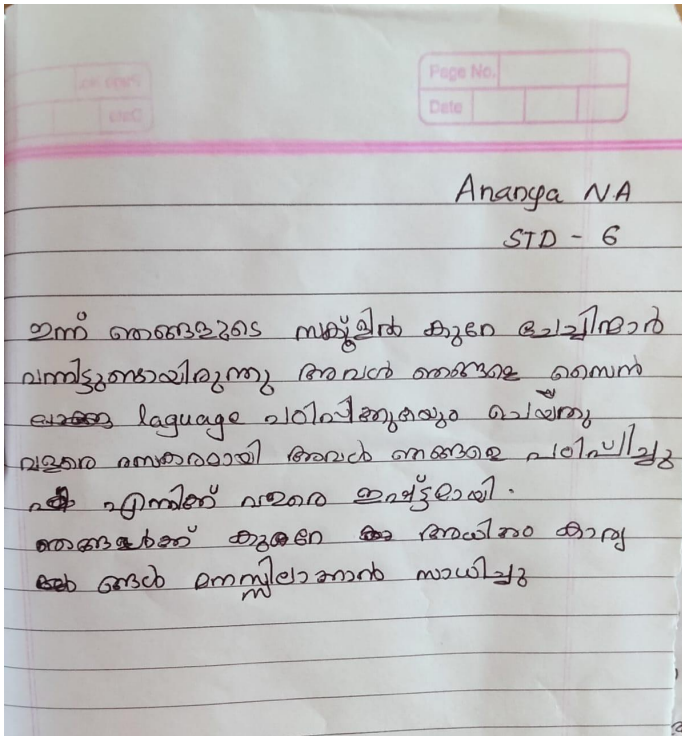 Page No.
Date
Ananya N.A
STD - 6
ഇന്ന് ഞങ്ങളുടെ സ്കൂളിൽ കുറേ ചേച്ചിമാർ
വന്നിട്ടുണ്ടായിരുന്നു അവർ ഞങ്ങളെ സൈൻ
laguage പഠിപ്പിക്കുകയും ചെയ്തു
വളരെ രസകരമായി അവർ ഞങ്ങളെ പഠിപ്പിച്ചു
എനിക്ക് വളരെ ഇഷ്ട്ടമായി .
ഞങ്ങൾക്ക് കുറേ അധികം കാര്യ
ങ്ങൾ മനസ്സിലാക്കാൻ സാധിച്ചു